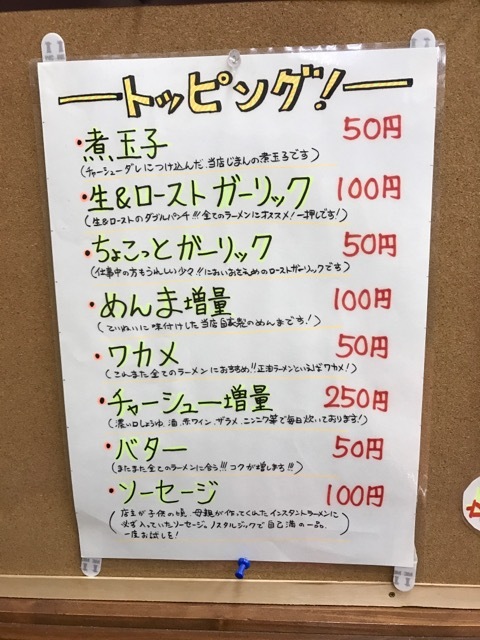 トッピング!
・煮玉子 50円
(チャーシューダレにつけ込んだ、当店じまんの煮玉子です)
・生&ローストガーリック 100円
(生&ローストのダブルパンチ!!!全てのラーメンにオススメ!一押しです!)
・ちょこっとガーリック 50円
(仕事中の方もうれしい少々!!においおさえめのローストガーリックです)
・めんま増量 100円
(ていねいに味付けした当店自家製のめんまです!)
・ワカメ 50円
(これまた全てのラーメンにおすすめ!!正油ラーメンといえばワカメ!)
・チャーシュー増量 250円
(濃い口しょうゆ、酒、赤ワイン、ザラメ、ニンニク等で毎日炊いております!)
・バター 50円
(またまた全てのラーメンに合う!!!コクが増します!!!)
・ソーセージ 100円
(店主が子供の頃、母親が作ってくれたインスタントラーメンに
必ず入っていたソーセージ。ノスタルジックで自己満の一品。
一度お試しを!)